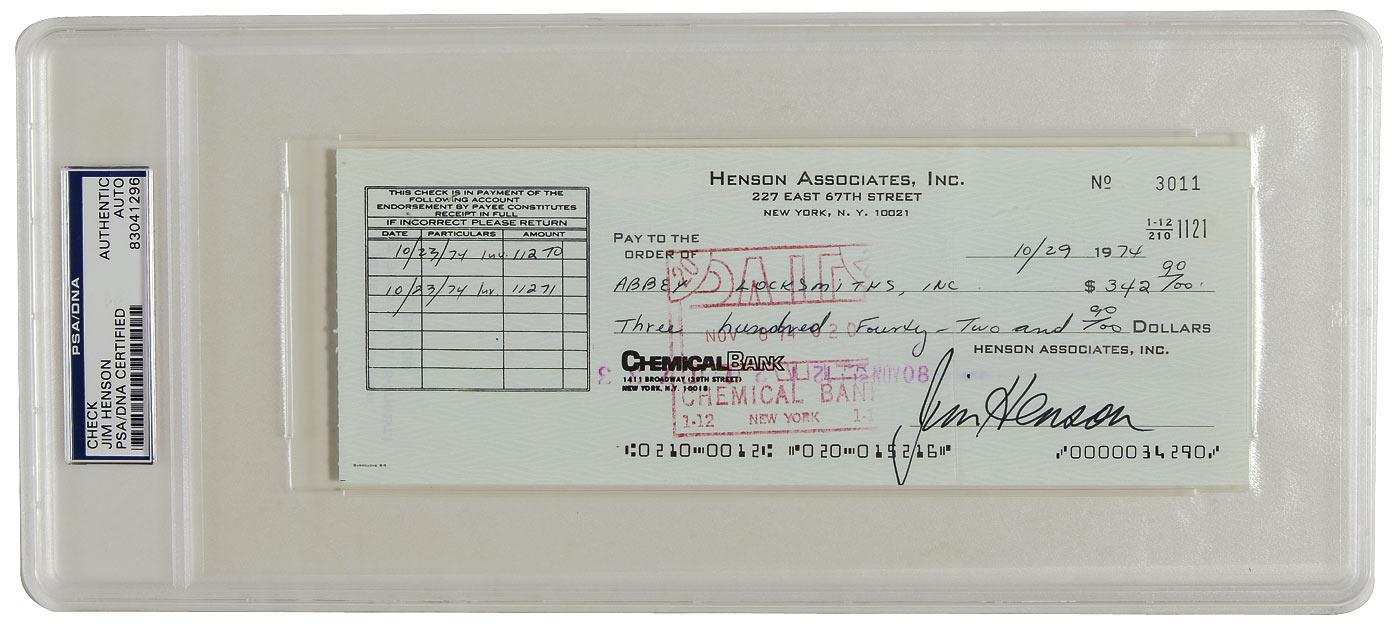 PSA/DNA
CHECK
JIM HENSON
PSA/DNA CERTIFIED
AUTHENTIC
AUTO
83041296
THIS CHECK IS IN PAYMENT OF THE
FOLLOWING ACCOUNT
ENDORSEMENT BY PAYEE CONSTITUTES
RECEIPT IN FULL
IF INCORRECT PLEASE RETURN
DATE PARTICULARS AMOUNT
10/23/74 Inv. 11270
10/23/74 Inv 11271
BURROUGHS
HENSON ASSOCIATES, INC.
227 EAST 67TH STREET
NEW YORK, N. Y. 10021
Nº 3011
1-12
210 1121
10/29 1974
PAY TO THE
ORDER OF
ABBEY LOCKSMITHS, INC $ 342 90/00
Three hundred Fourty-Two and 90/00 DOLLARS
HENSON ASSOCIATES, INC.
CHEMICAL BANK
1411 BROADWAY (39TH STREET)
NEW YORK, N.Y. 10018
PAID
NOV
NOV 08
CHEMICAL BAN
1-12 NEW YORK
Jim Henson
⑆0210⑉0012⑆ ⑈020⑉015216⑈ ⑇0000034290⑇